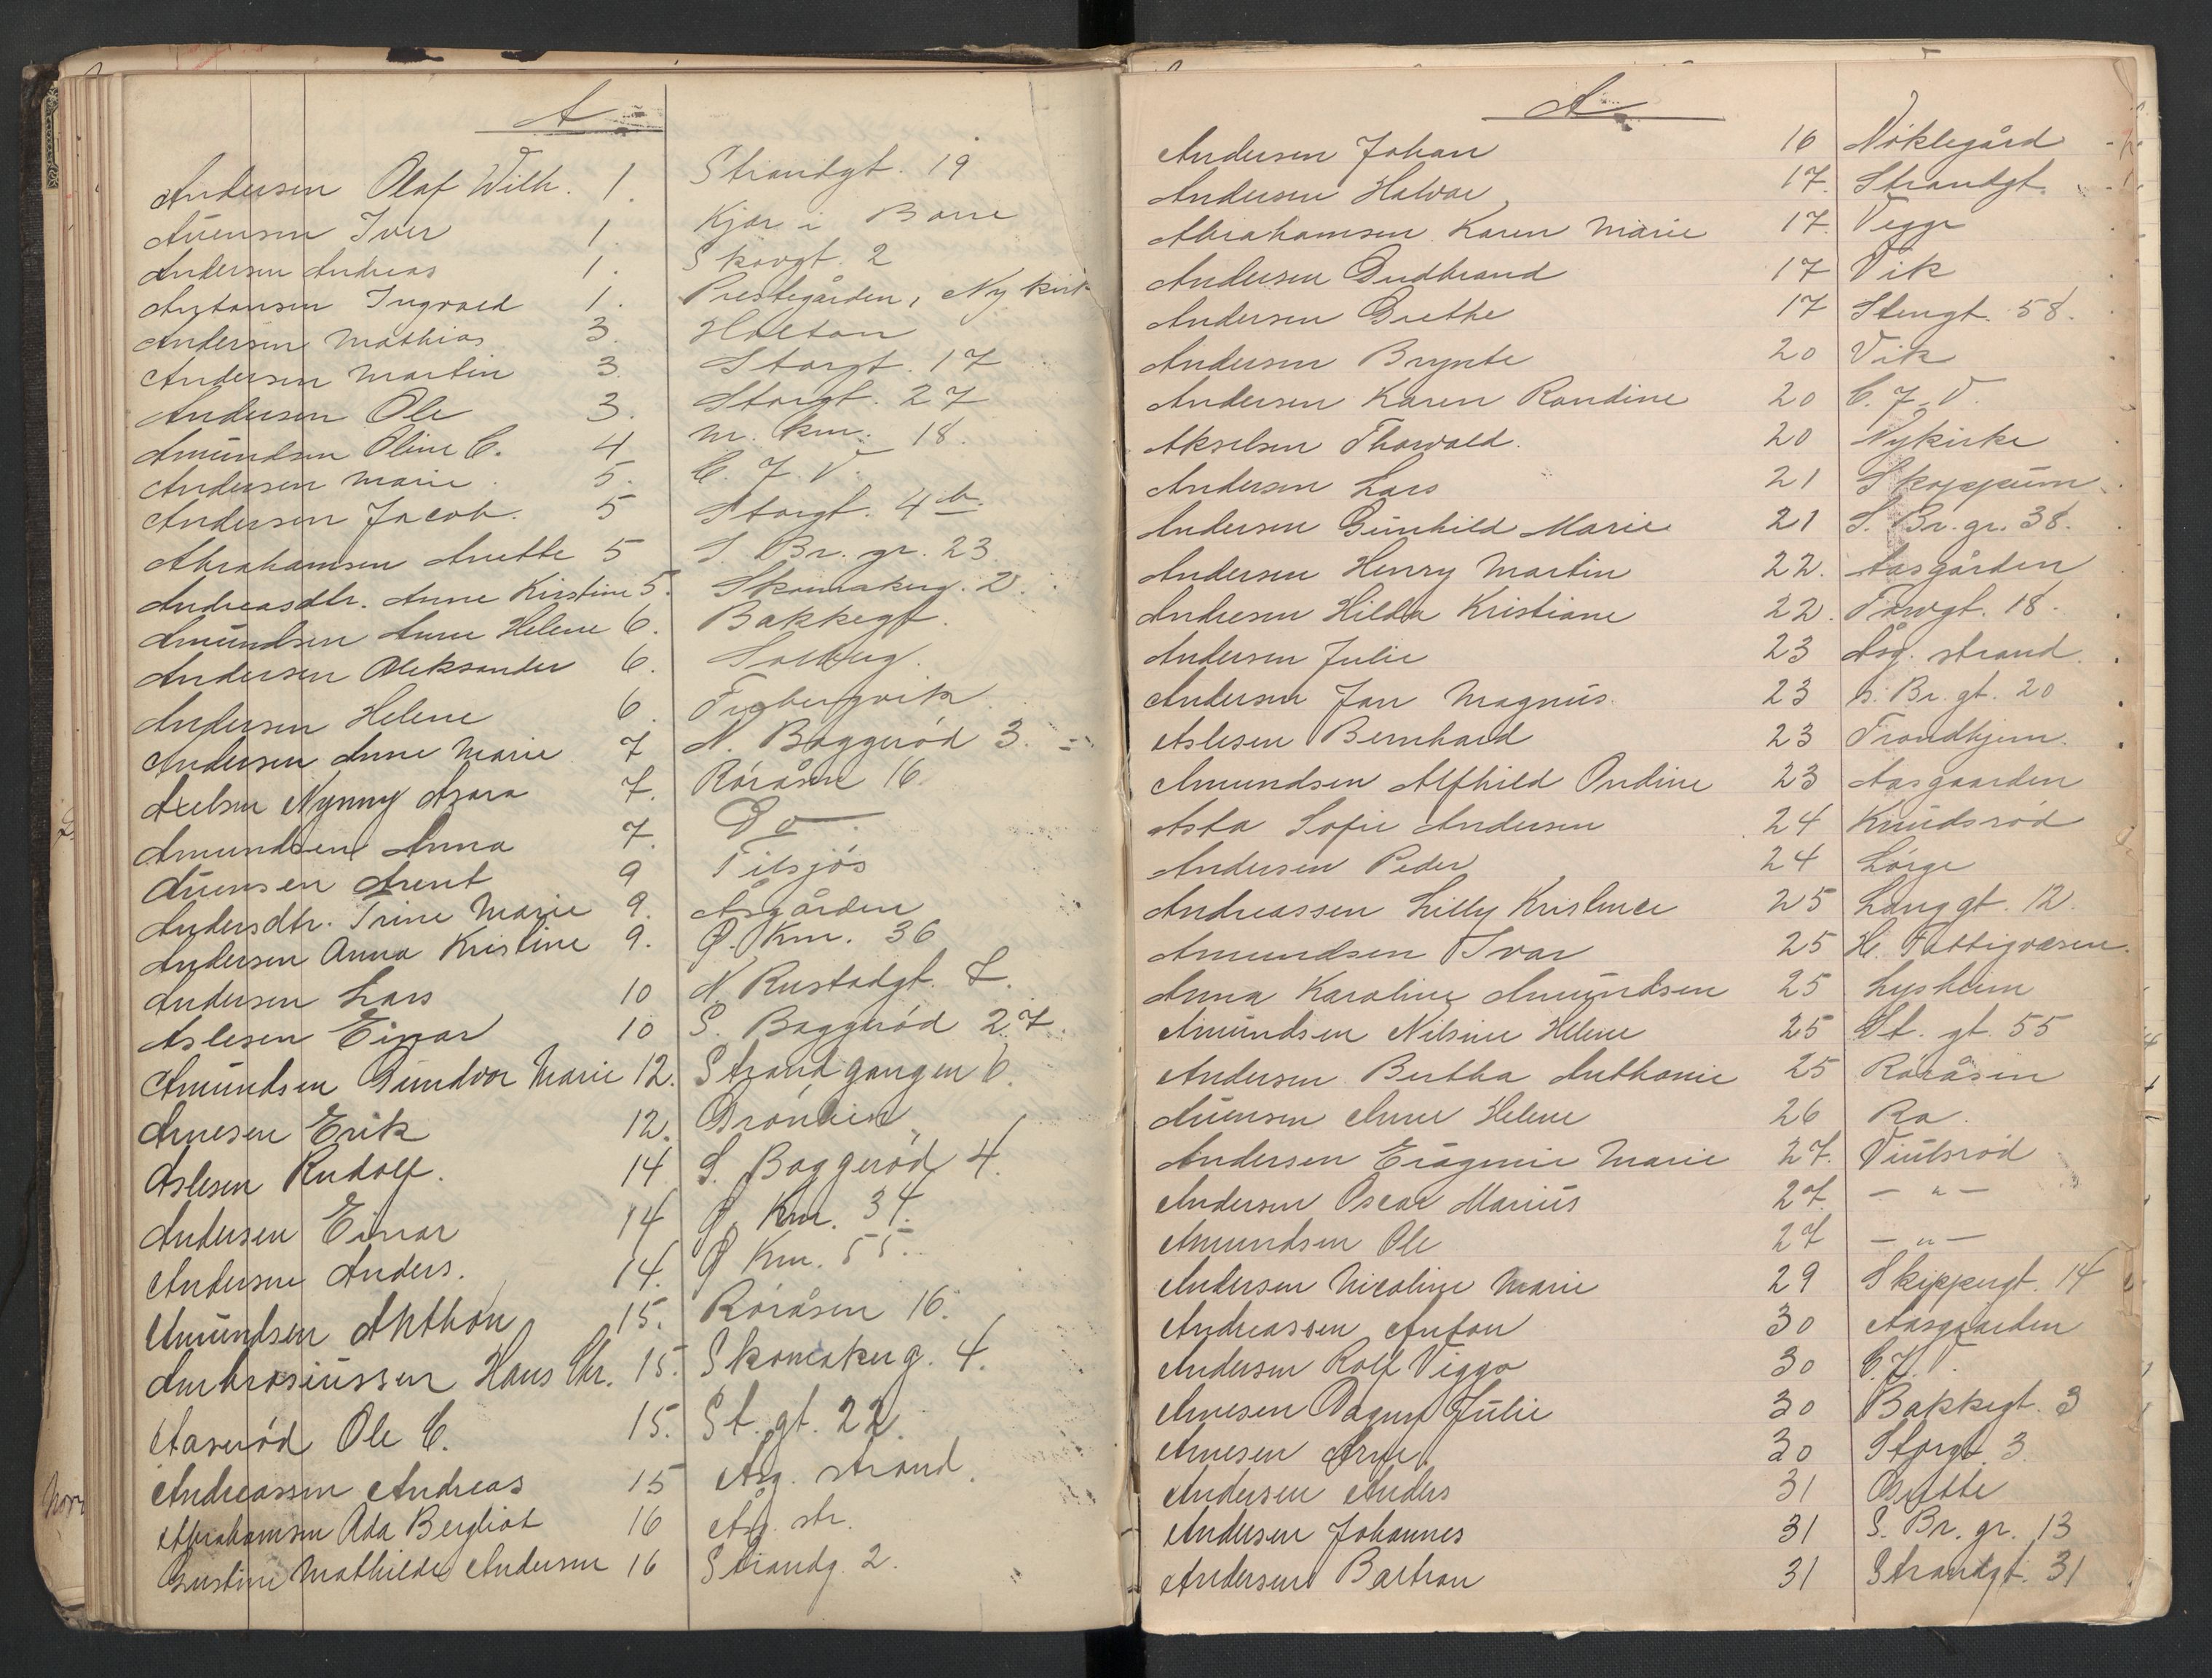 A
Andersen Olaf Wilh. 1. Strandgt. 19
Auensen Iver 1. Kjær i Borre
Andersen Andreas 1. Skovgt. 2
Antonsen Ingvald 1. Prestegården, Nykirk
Andersen Mathias 3. Holtan
Andersen Martin 3. Storgt. 17
Andersen Ole 3. Storgt. 27
Amundsen Oline C. 4 m. km. 18.
Andersen Marie. 5. C. J. V.
Andersen Jacob. 5 Storgt. 4 b.
Abrahamsen Anette 5 S. Br. gr. 23
Andreasdtr. Anne Kirstine 5. Skomakerg. 2.
Amundsen Anne Helene 6. Bakkegt.
Andersen Aleksander 6. Solberg.
Andersen Helene 6. Fogbergvik
Andersen Anne Marie 7 N. Baggerød 3.
Axelsen Nynny Asora 7. Röråsen 16.
Amundsen Anna 7. Do
Auensen Arent 9 Filsjös
Andersdtr. Trine Marie 9. Åsgården
Andersen Anna Kristine 9. Ø. Km. 36
Andersen Lars 10 N. Rustadgt. 7.
Aslesen Einar 10 S. Baggeröd 27.
Amundsen Gundvor Marie 12. Strandgangen 6.
Arnesen Erik 12.
Aslesen Rudolf. 14 S. Baggeröd 4.
Andersen Einar 14 Ø. Km. 34.
Andersen Anders. 14. Ø Km. 55.
Amundsen Anthon 15. Röråsen 16.
Ambrosiussen Hans Chr. 15. Skomakerg. 4.
Aaseröd Ole C. 15. St. gt. 22.
Andreassen Andreas 15 Åsg. strand.
Abrahamsen Ada Bergliot 16 Åsg. str.
Gustine Mathilde Andersen 16 Strandg. 2.
A
Andersen Johan 16 Nöklegård
Andersen Halvor 17. Strandgt.
Abrahamsen Karen Marie 17. Vegge
Andersen Gudbrand 17 Vik
Andersen Grethe 17 Stengt. 58.
Andersen Brynte 20 Vik
Andersen Karen Randine 20 C. J. V.
Akselsen Thorvald. 20 Nykirke
Andersen Lars 21 Skoppum
Andersen Gunhild Marie 21 S. Br. gr. 38.
Andersen Henry Martin 22. Aasgården
Andresen Hilda Kristiane 22. Torvgt. 18.
Andersen Julie 23 Åsg. strand.
Andersen Jan Magnus. 23 S. Br. gt. 20
Aslesen Bernhard 23 Trondhjem.
Amundsen Alfhild Ondine 23 Aasgaarden
Asta Sofie Andersen 24 Knudsröd
Andersen Peder 24 Lörge
Andreassen Lilly Kristence 25 Langgt. 12.
Amundsen Ivar 25 H. Fattigvæsen.
Anna Karoline Amundsen 25 Lysheim
Amundsen Nilsine Helene 25 St. gt. 55
Andersen Bertha Anthonie 25 Röråsen
Auensen Anne Helene 26 Ra.
Andersen Eragnie Marie 27. Viulsröd
Andersen Oscar Marius 27. — " —
Amundsen Ole 27 — " —
Andersen Nicoline Marie 29 Skippergt. 14
Andreassen Anton 30 Aasgaarden
Andersen Rolf Viggo 30 C. J. V.
Arnesen Dagny Julie 30 Bakkegt. 3
Arnesen Arne. 30 Storgt. 3
Andersen Anders 31
Andersen Johannes 31 S. Br. gr. 13
Andersen Bertran 31 Strandgt. 31